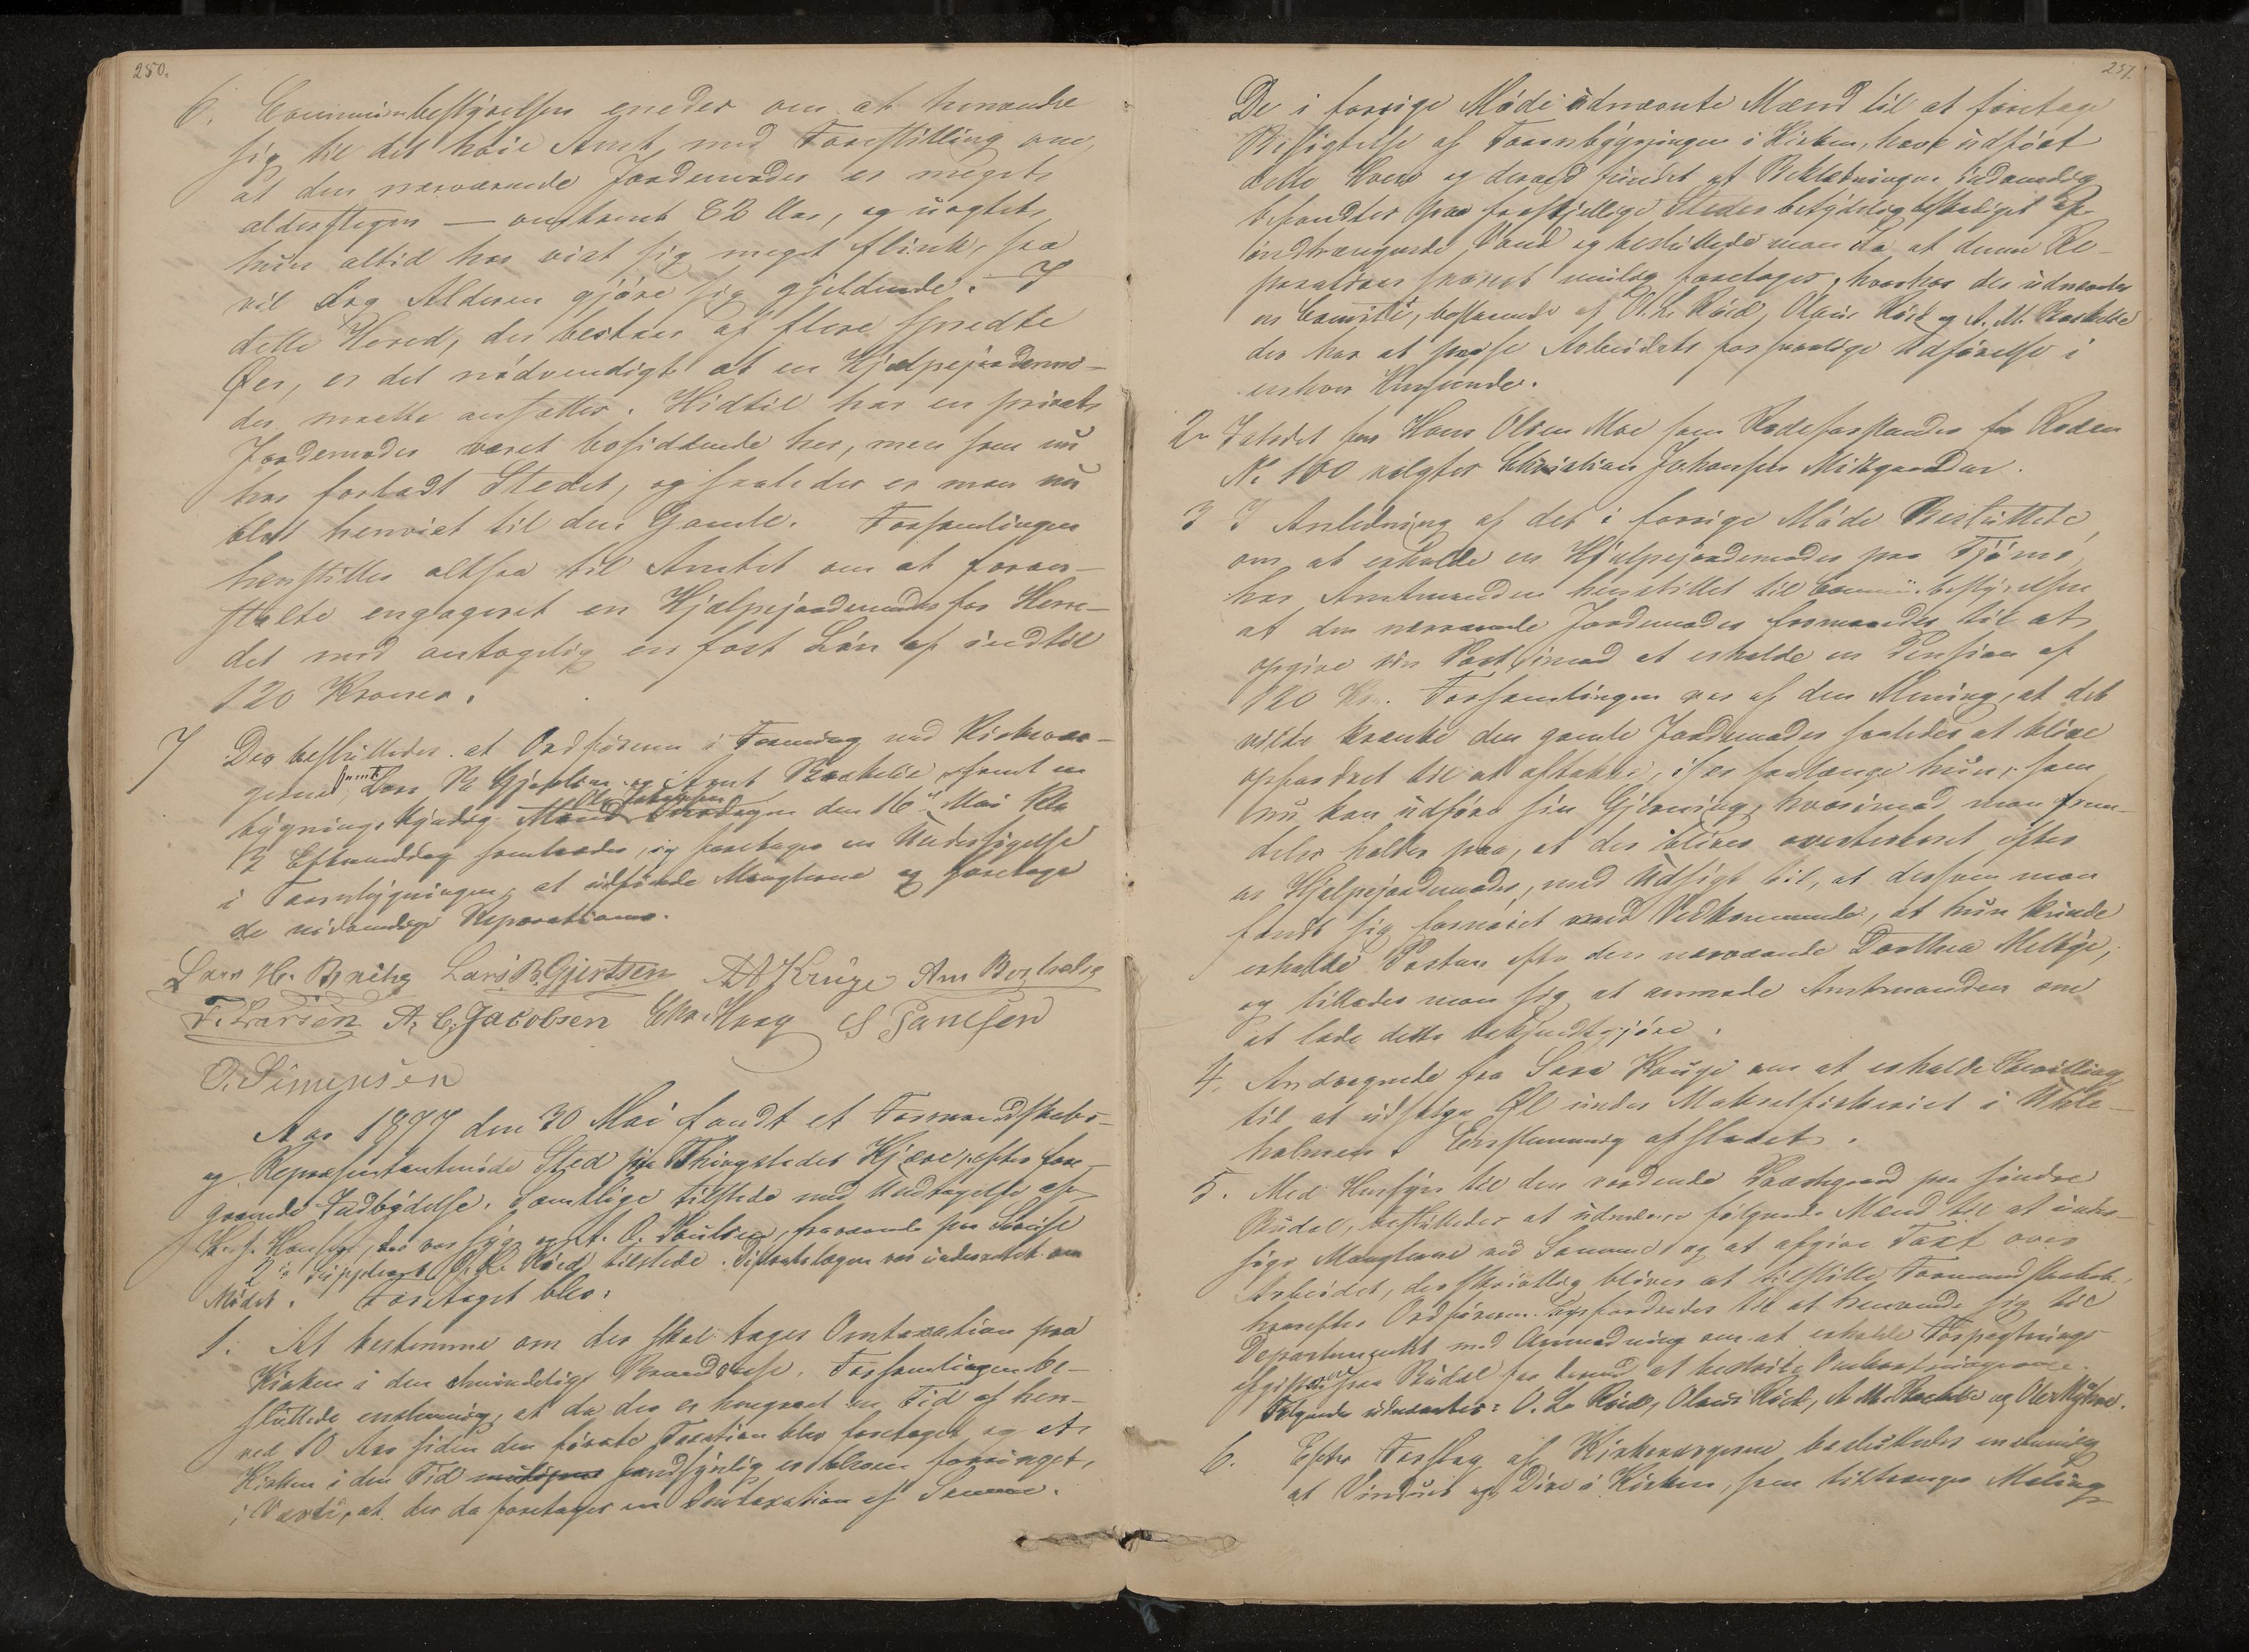 250.
6. Communbestyrelsen eneder om at henvende
sig til det høie Amt med Forestilling om,
at den nærværende Jordemoder er meget
alderstegen — omtrent 62 Aar, og uagtet
hun altid har vist sig meget flink, saa
vil dog Alderen gjøre sig gjeldende. I
dette Hered, der bestaar af flere spredte
Øer, er det nødvendigt at en Hjælpejordemo-
der maatte ansættes. Hidtil har en privat
Jordemoder været bosiddende her, men som nu
har forladt Stedet, og saaledes er man nu
blot henvist til den Gamle. Forsamlingen
henstiller altsaa til Amtet om at foran-
stalte engageret en Hjælpejordemoder for Herre-
det med antagelig en fast Løn af indtil
120 Kroner.
7 Der besluttedes at Ordføreren i Forening med Kirkevær-
gerne, samt Lars B. Gjertsen og Arnt Bækelie samt en
bygningskyndig Mand Onsdagen den 16de Mai Kl.
12 Eftermiddag sammentræder, og foretager en Undersøgelse
i Taarnbygningen, at udfinde Manglerne og foretage
de nødvendige Reparationer.
Lars H. Lars B. Gjertsen A A Kruge Arn
F. Larsen A. C. Jacobsen Chr. Haag S Jansen
O. Simensen
Aar 1877 den 30 Mai fandt et Formandskabs-
og Repræsentantmøde Sted paa Thingstedet Kjære, efter fore-
gaaende Indbydelse. Samtlige tilstede med Undtagelse af
H. J. Hansen, der var syg og A. O. Poulsen, fraværende paa Reise
2den Suppleant O. L. Røed tilstede. Distriktslægen var underrettet om
Mødet. Foretaget blev:
1. At bestemme om der skal tages Omtaxation paa
Kirken i den almindelige Brandkasse. Forsamlingen be-
sluttede enstemmig, at da der er hengaaet en Tid af hen-
ved 10 Aar siden den første Taxation blev foretaget og at
Kirken i den Tid sandsynlig er bleven forringet,
i Værdi, at der da foretages en Omtaxation af Samme.
251.
De i forrige Møde udnævnte Mænd til at foretage
Besigtelse af Taarnbygningen i Kirken, have udført
dette Hverv og derved fundet at Beklædningen indvendig
befandtes paa forskjellige Steder betydelig beskadiget af
indtrængende Vand og besluttede man da, at denne Re-
paration snarest mulig foretages, hvorhos der udnævntes
en Comitte, bestaaende af O. L. Røed, Olaus Røed og A. M. Bækelie
der har at paase Arbeidets forsvarlige Udførelse i
enhver Henseende.
2 Istedet for Hans Olsen Moe som Rodeforstander for Roden
No 160 valgtes Christian Johansen Midgaarden.
3 I Anledning af det i forrige Møde Besluttede,
om at erholde en Hjælpejordemoder paa Tjømø,
har Amtmanden henstillet til Communebestyrelsen
at den nærværende Jordemoder formaaedes til at
opgive sin Post imod at erholde en Pension af
120 Kr. Forsamlingen var af den Mening, at det
vilde krænke den gamle Jordemoder saaledes at blive
opfordret til at aftræde, især saalænge hun, som
nu kan udføre sin Gjerning, hvorimod man frem-
deles holder paa, at der bliver averteret efter
en Hjælpejordemoder, med Udsigt til, at dersom man
fandt sig fornøiet med Vedkommende, at hun kunde
erholde Posten efter den nærværende Dorthea Melbye,
og tillader man sig at anmode Amtmanden om
at lade dette bekjendtgjøre.
4. Andragende fra Sara Kruge om at erholde Bevilling
til at udsælge Øl under Makrelfiskeriet i Ude-
holmen. Enstemmig afslaaet.
5. Med Hensyn til den vordende Præstegaard paa søndre
Budal, besluttedes at udnævne følgende Mænd til at under-
søge Manglerne ved Samme, og at afgive Taxt over
Arbeidet, der skriftlig bliver at tilstille Formandskabet,
hvorefter Ordføreren opfordredes til at henvende sig til
Departementet med Anmodning om at erholde Forpagtnings
afgiften paa Budal for derved at bestride Omkostningerne.
Følgende udnævntes: O. L. Røed, Olaus Røed, A. M. Bækelie og Ole Myhre.
6. Efter Forslag af Kirkeværgerne besluttedes enstemmig
at Vinduer og Døre i Kirken, som tiltrænger Maling